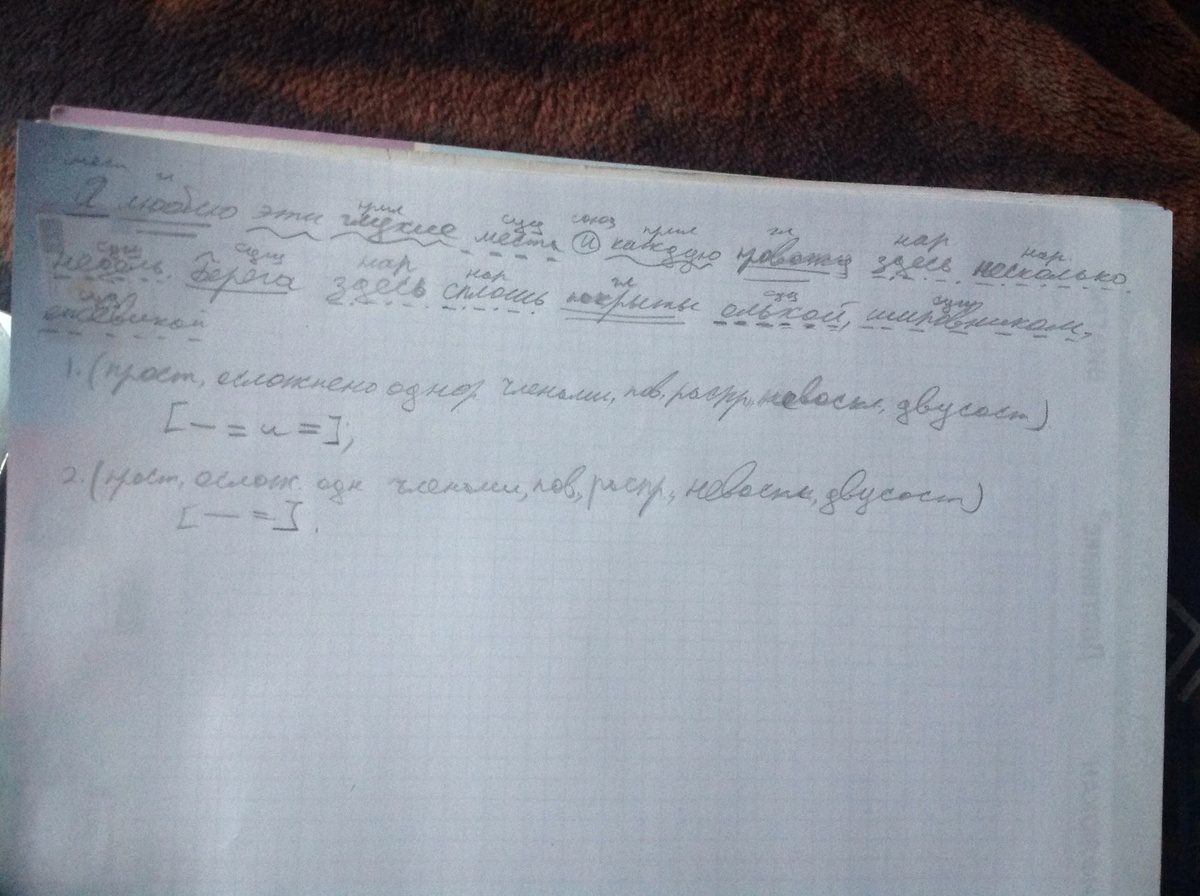 мест гл прил сущ союз прил гл нар нар
Я люблю эти глухие места и каждую провожу здесь несколько
сущ сущ нар нар гл сущ сущ
недель. Берега здесь сплошь покрыты ольхой, шиповником,
сущ
ежевикой
1. (прост, осложнено однор членами, пов, распр, невоскл, двусост)
[— = и =];
2. (прост, ослож. одн членами, пов, распр., невоскл, двусост)
[— =].